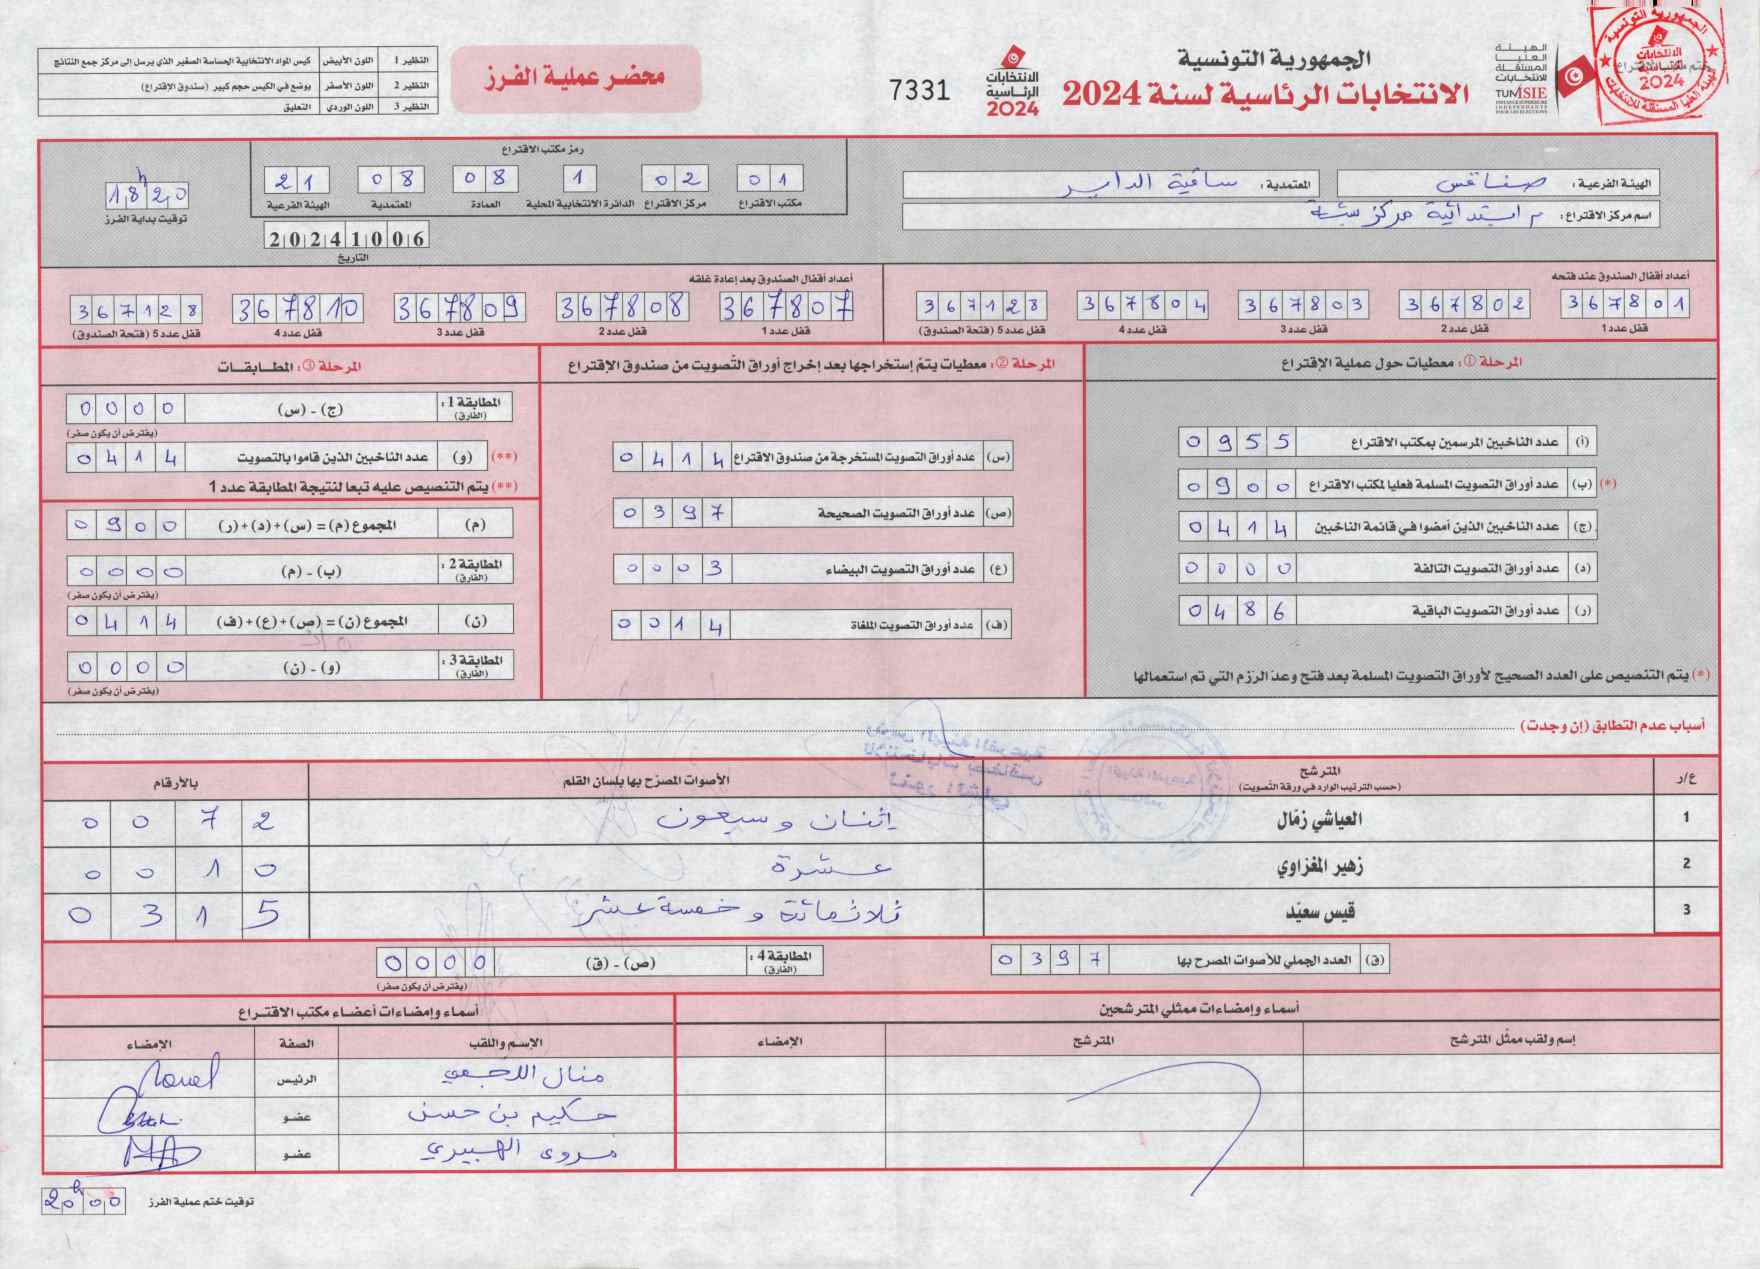 الجمهورية التونسية
الانتخابات الرئاسية لسنة 2024
الهيئة العليا المستقلة للانتخابات
TUNISIE
الجمهورية التونسية
الانتخابات الرئاسية 2024
الانتخابات الرئاسية 2024
7331
محضر عملية الفرز
النظير 1 اللون الأبيض كيس المواد الانتخابية الحساسة الصغير الذي يرسل إلى مركز جمع النتائج
النظير 2 اللون الأصفر يوضع في الكيس حجم كبير (صندوق الإقتراع)
النظير 3 اللون الوردي التعليق
الهيئة الفرعية : صفاقس
المعتمدية : ساقية الداير
اسم مركز الاقتراع : م ابتدائية مركز
رمز مكتب الاقتراع
01 02 1 08 08 21
مكتب الاقتراع مركز الاقتراع الدائرة الانتخابية المحلية العمادة المعتمدية الهيئة الفرعية
20241006
التاريخ
18h20
توقيت بداية الفرز
أعداد أقفال الصندوق عند فتحه
367801 367802 367803 367804 367128
قفل عدد 1 قفل عدد 2 قفل عدد 3 قفل عدد 4 قفل عدد 5 (فتحة الصندوق)
أعداد أقفال الصندوق بعد إعادة غلقه
367807 367808 367809 367810 367128
قفل عدد 1 قفل عدد 2 قفل عدد 3 قفل عدد 4 قفل عدد 5 (فتحة الصندوق)
المرحلة ① : معطيات حول عملية الإقتراع
(أ) عدد الناخبين المرسمين بمكتب الاقتراع 0955
(*) (ب) عدد أوراق التصويت المسلمة فعليا لمكتب الاقتراع 0900
(ج) عدد الناخبين الذين أمضوا في قائمة الناخبين 0414
(د) عدد أوراق التصويت التالفة 0000
(ر) عدد أوراق التصويت الباقية 0486
(*) يتم التنصيص على العدد الصحيح لأوراق التصويت المسلمة بعد فتح وعد الرزم التي تم استعمالها
المرحلة ② : معطيات يتم إستخراجها بعد إخراج أوراق التصويت من صندوق الإقتراع
(س) عدد أوراق التصويت المستخرجة من صندوق الاقتراع 0414
(ص) عدد أوراق التصويت الصحيحة 0397
(ع) عدد أوراق التصويت البيضاء 0003
(ف) عدد أوراق التصويت الملغاة 0014
المرحلة ③ : المطابقات
المطابقة 1 : (الفارق) (ج) - (س) 0000
(يفترض أن يكون صفر)
(**) (و) عدد الناخبين الذين قاموا بالتصويت 0414
(**) يتم التنصيص عليه تبعا لنتيجة المطابقة عدد 1
(م) المجموع (م) = (س) + (د) + (ر) 0900
المطابقة 2 : (الفارق) (ب) - (م) 0000
(يفترض أن يكون صفر)
(ن) المجموع (ن) = (ص) + (ع) + (ف) 0414
المطابقة 3 : (الفارق) (و) - (ن) 0000
(يفترض أن يكون صفر)
أسباب عدم التطابق (إن وجدت)
ع/ر المترشح (حسب الترتيب الوارد في ورقة التصويت) الأصوات المصرح بها بلسان القلم بالأرقام
1 العياشي زمّال إثنان وسبعون 0072
2 زهير المغزاوي عشرة 0010
3 قيس سعيّد ثلاثمائة وخمسة عشر 0315
(ق) العدد الجملي للأصوات المصرح بها 0397
المطابقة 4 : (الفارق) (ص) - (ق) 0000
(يفترض أن يكون صفر)
أسماء وإمضاءات ممثلي المترشحين
إسم ولقب ممثّل المترشح المترشح الإمضاء
أسماء وإمضاءات أعضاء مكتب الاقتراع
الإسم واللقب الصفة الإمضاء
منال اللجمي الرئيس
حكيم بن حسن عضو
مروى الهبيري عضو
توقيت ختم عملية الفرز 20h00